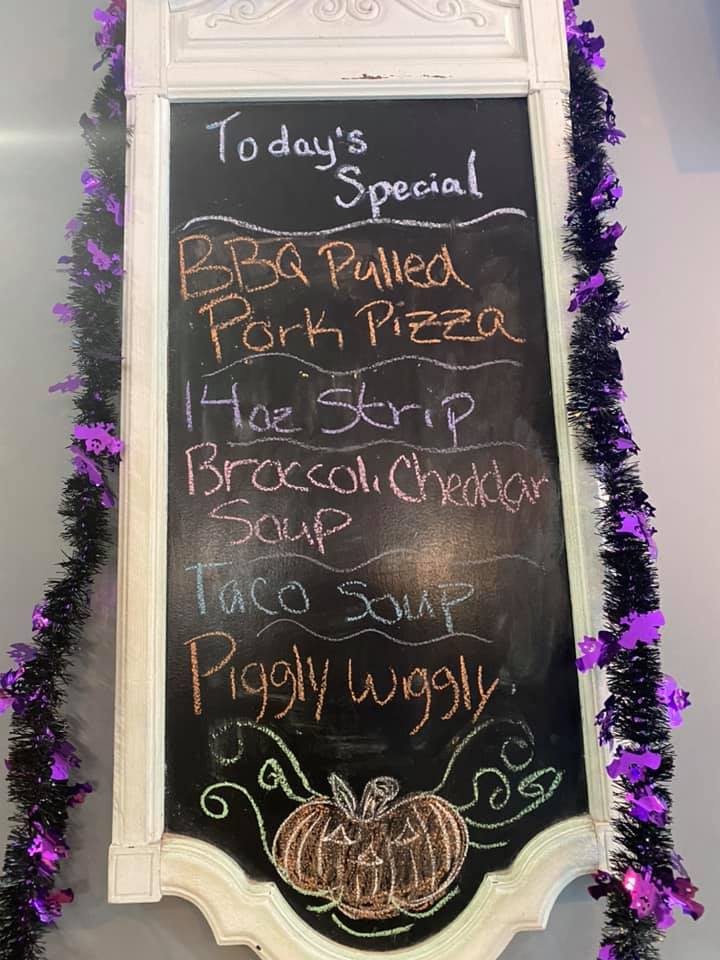 Today's
Special
BBQ Pulled
Pork Pizza
14oz Strip
Broccoli Cheddar
Soup
Taco Soup
Piggly Wiggly